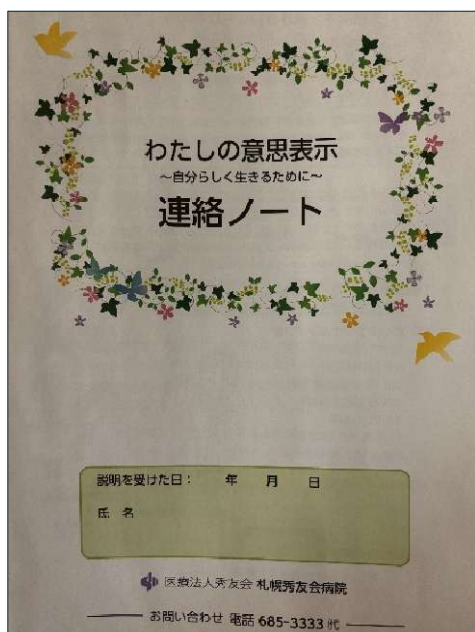 わたしの意思表示
～自分らしく生きるために～
連絡ノート
説明を受けた日： 年 月 日
氏 名
医療法人秀友会 札幌秀友会病院
お問い合わせ 電話 685-3333 ㈹